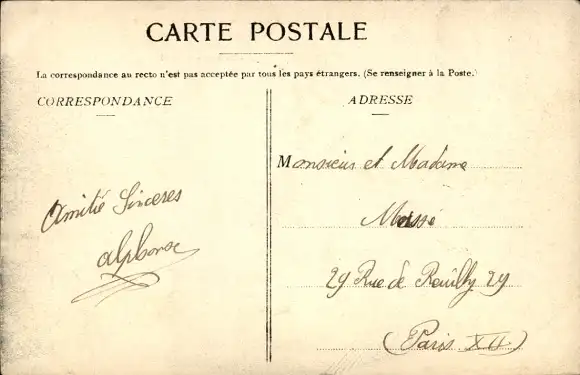 CARTE POSTALE
La correspondance au recto n'est pas acceptée par tous les pays étrangers. (Se renseigner à la Poste.)
CORRESPONDANCE
Amitié Sinceres
alphonse
ADRESSE
Monsieur et Madame
Massé
29 Rue de Reuilly 29
(Paris XII)